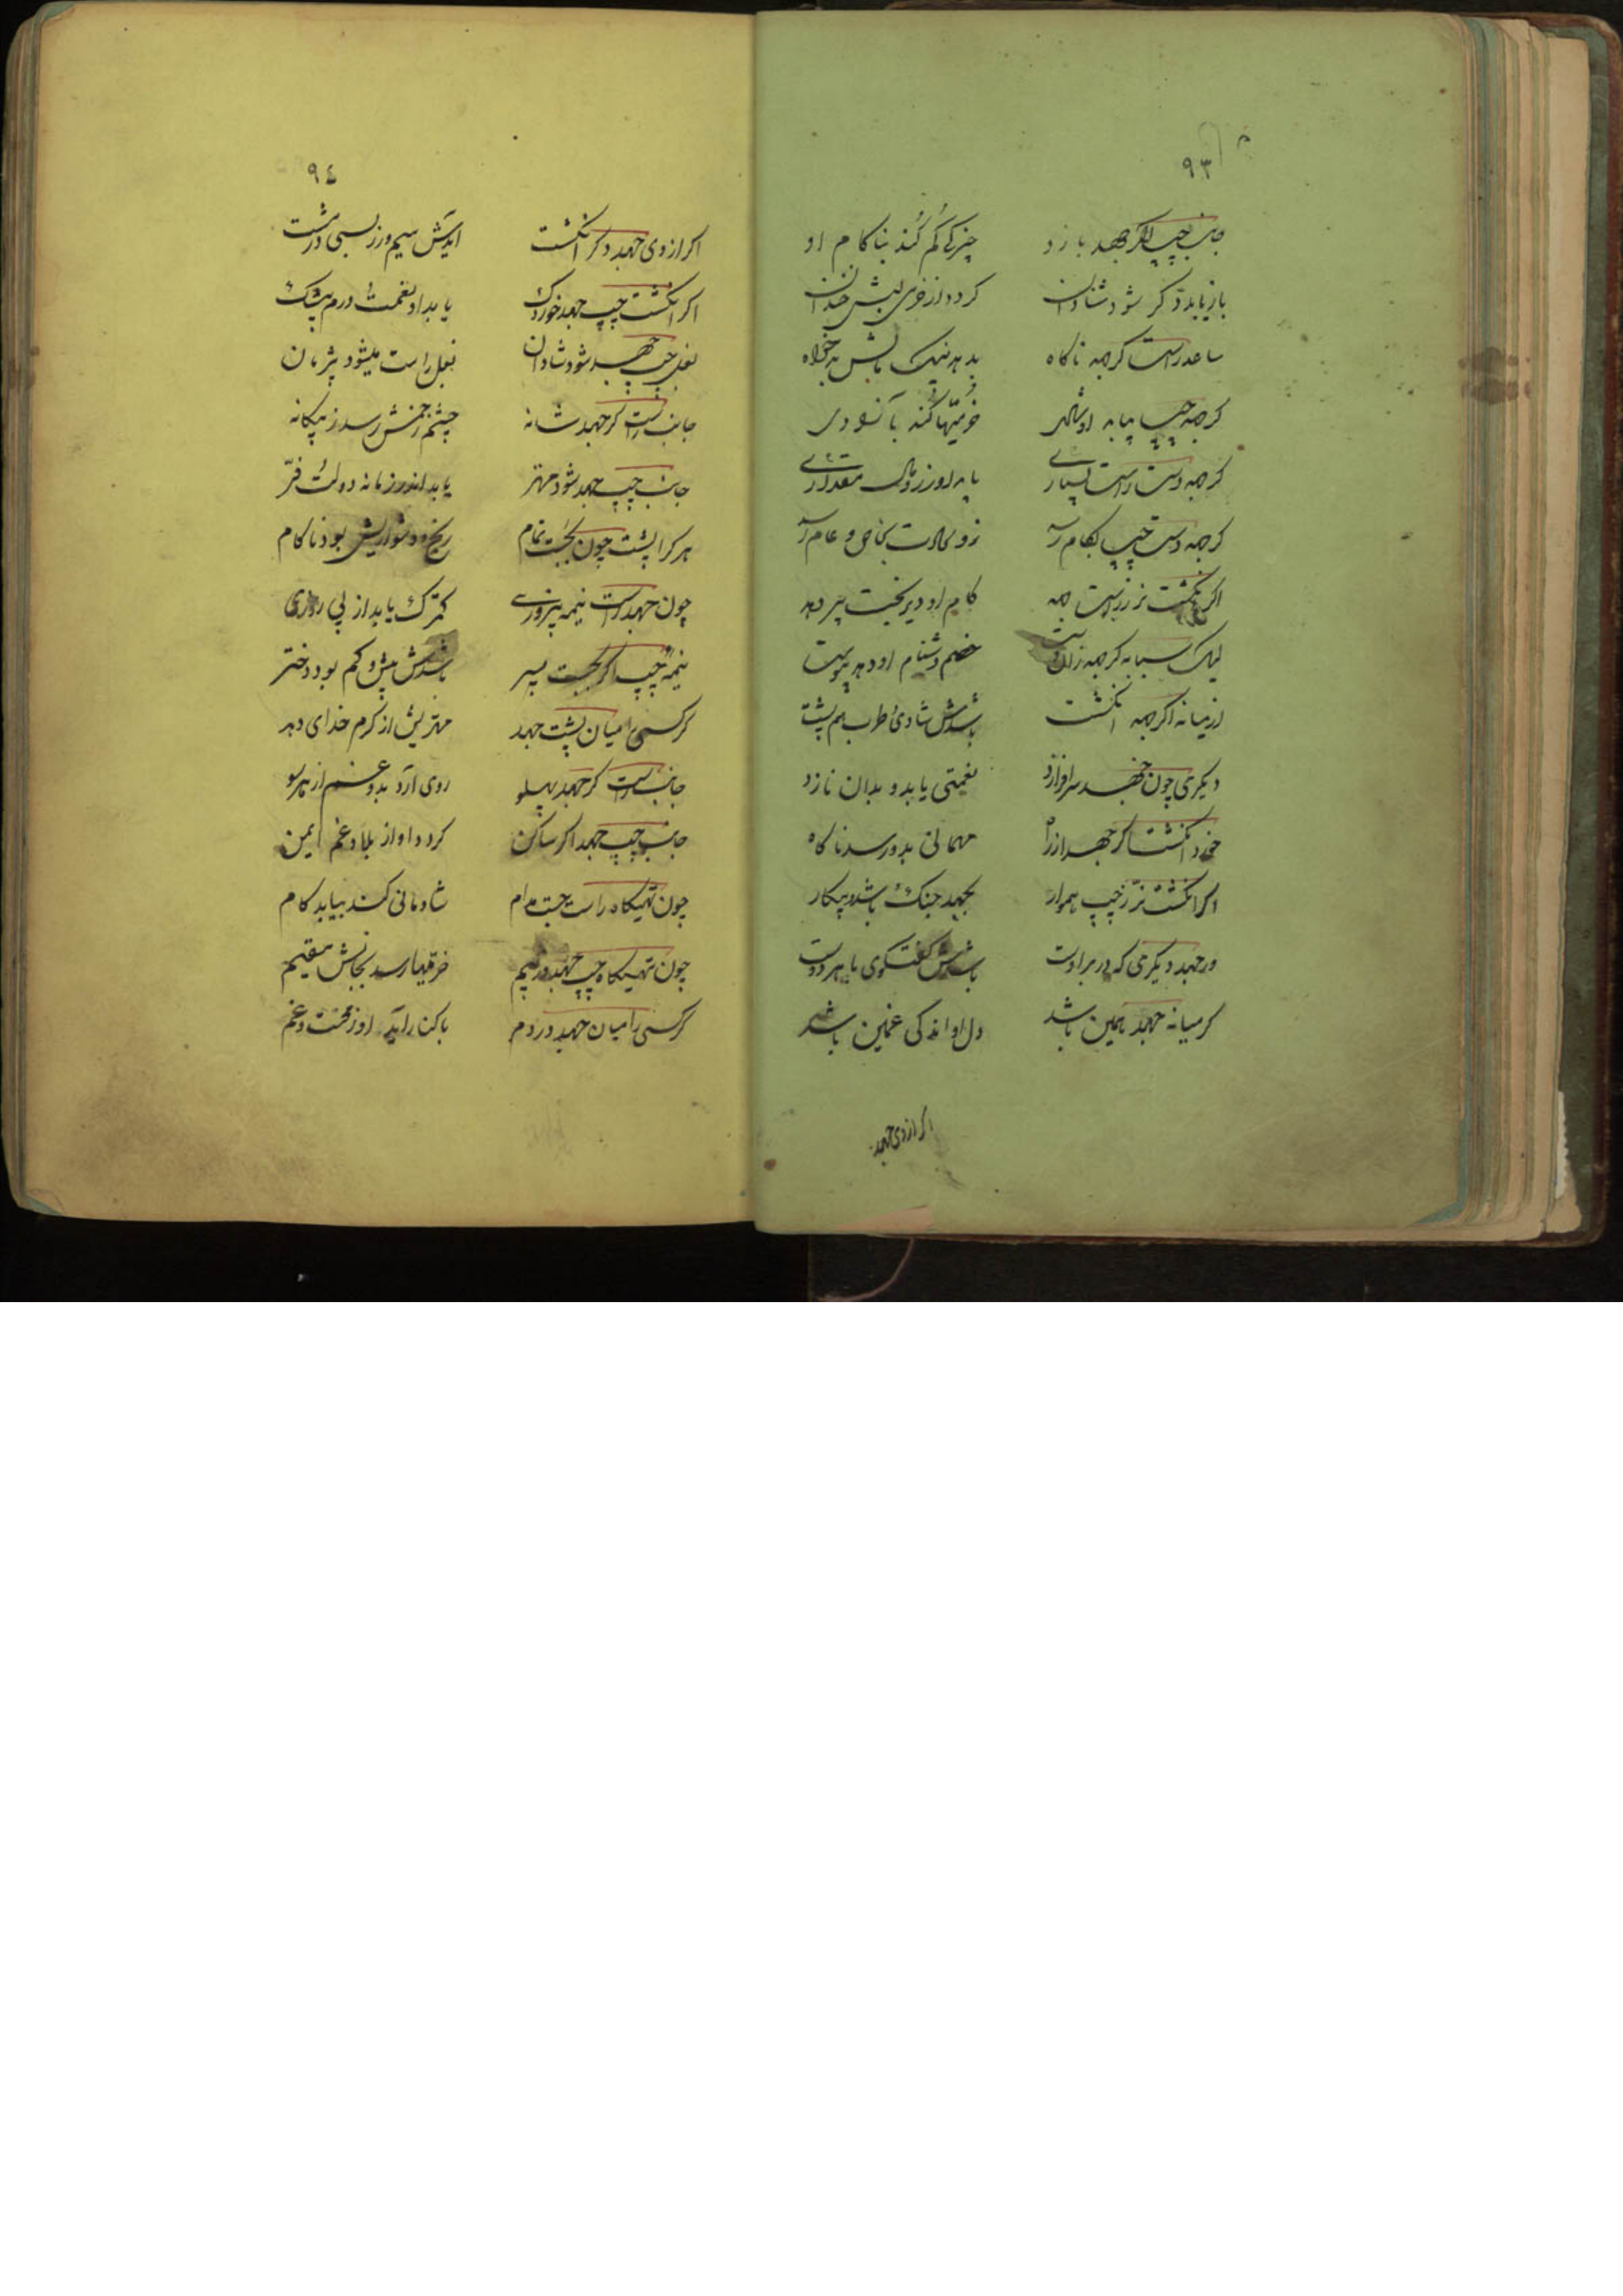 ۹۳
جانب چپ اکر جهد بازو چیزکی کم کند بناکام او
باز یابد دکر شود شادان کردد از خرمی لبش خندان
ساعد راست کر جهد ناکاه بد هر نیک بدخواه
کر جهد چپ بیابد او خرمیها کند
کر جهد دست راست بسیاری یابد او زر و مال مقداری
کر جهد دست چپ بکام رسد زو بخاص و عام رسد
اکر انکشت نر ز راست جهد کام او دیر بخت پیر دهد
لیک سبابه کر جهد زان دست خصم دشنام او دهد پیوست
از میانه اکر جهد انکشت باشدش شادی و طرب هم پشت
دیکری چون جهد سرافرازد نعمتی یابد و بدان نازد
خورد انکشت کر جهد از راه مهمانی بدو رسد ناکاه
اکر انکشت نر ز چپ هموار بجهد جنک باشد و پیکار
ور جهد دیکری که در بر اوست باشدش کفتکوی با هر دوست
کر میانه جهد همین باشد دل او اندکی غمین باشد
اکر از وی جهد
۹٤
اکر از وی جهد دکر انکشت آیدش سیم و زر بسی در مشت
اکر انکشت چپ جهد خوردک یابد او نعمت و درم بیشک
بغل چپ جهد شود شادان بغل راست میشود پژمان
جانب راست کر جهد شانه چشم زخمش رسد ز بیکانه
جانب چپ جهد شود مهتر یابد اندر زمانه دولت و فر
هر کرا پشت چون بجست تمام رنج و دشواریش بود ناکام
چون جهد راست نیمه پیروزی کمترک یابد از پی روزی
نیمه چپ اکر بجست پسر باشدش بیش و کم بود دختر
کر کسی را میان پشت جهد مهتریش از کرم خدای دهد
جانب راست کر جهد پهلو روی آرد بدو غم از هر سو
جانب چپ جهد اکر ساکن کردد او از بلا و غم ایمن
چون تهیکاه راست جست مدام شادمانی کند بیابد کام
چون تهیکاه چپ جهد در نیم خرمیها رسد بجانش مقیم
کر کسی را میان جهد در دم باکنار آید او ز محنت و غم